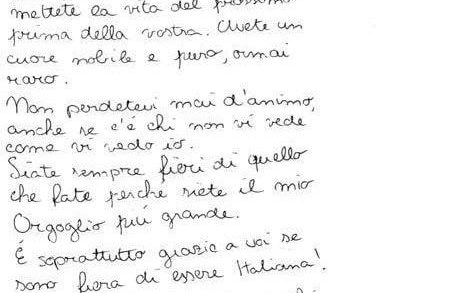 mettete la vita del prossimo
prima della vostra. Avete un
cuore nobile e puro, ormai
raro.
Non perdetevi mai d'animo,
anche se c'è chi non vi vede
come vi vedo io.
Siate sempre fieri di quello
che fate perché siete il mio
Orgoglio più grande.
É soprattutto grazie a voi se
sono fiera di essere Italiana!